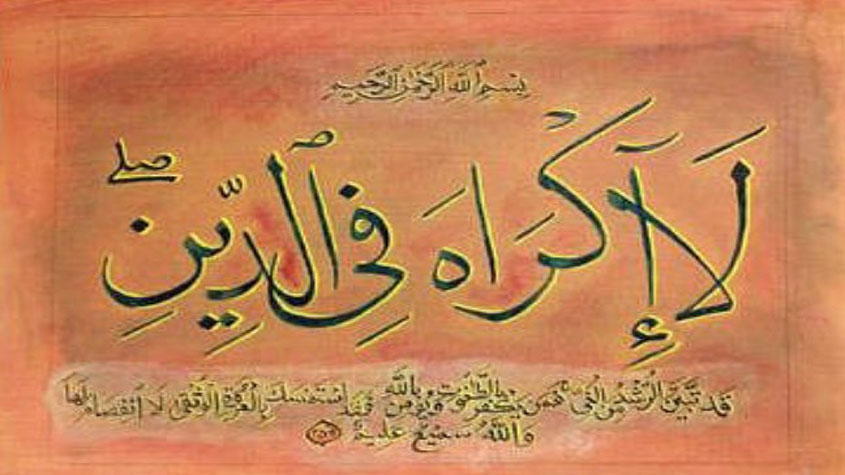 بِسْمِ ٱللَّهِ ٱلرَّحْمَٰنِ ٱلرَّحِيمِ
لَآ إِكْرَاهَ فِى ٱلدِّينِ ۖ
قَد تَّبَيَّنَ الرُّشْدُ مِنَ الْغَىِّ ۚ فَمَن يَكْفُرْ بِالطَّـٰغُوتِ وَيُؤْمِنۢ بِاللَّهِ فَقَدِ اسْتَمْسَكَ بِالْعُرْوَةِ الْوُثْقَىٰ لَا انْفِصَامَ لَهَا
وَاللَّهُ سَمِيعٌ عَلِيمٌ ﴿٢٥٦﴾